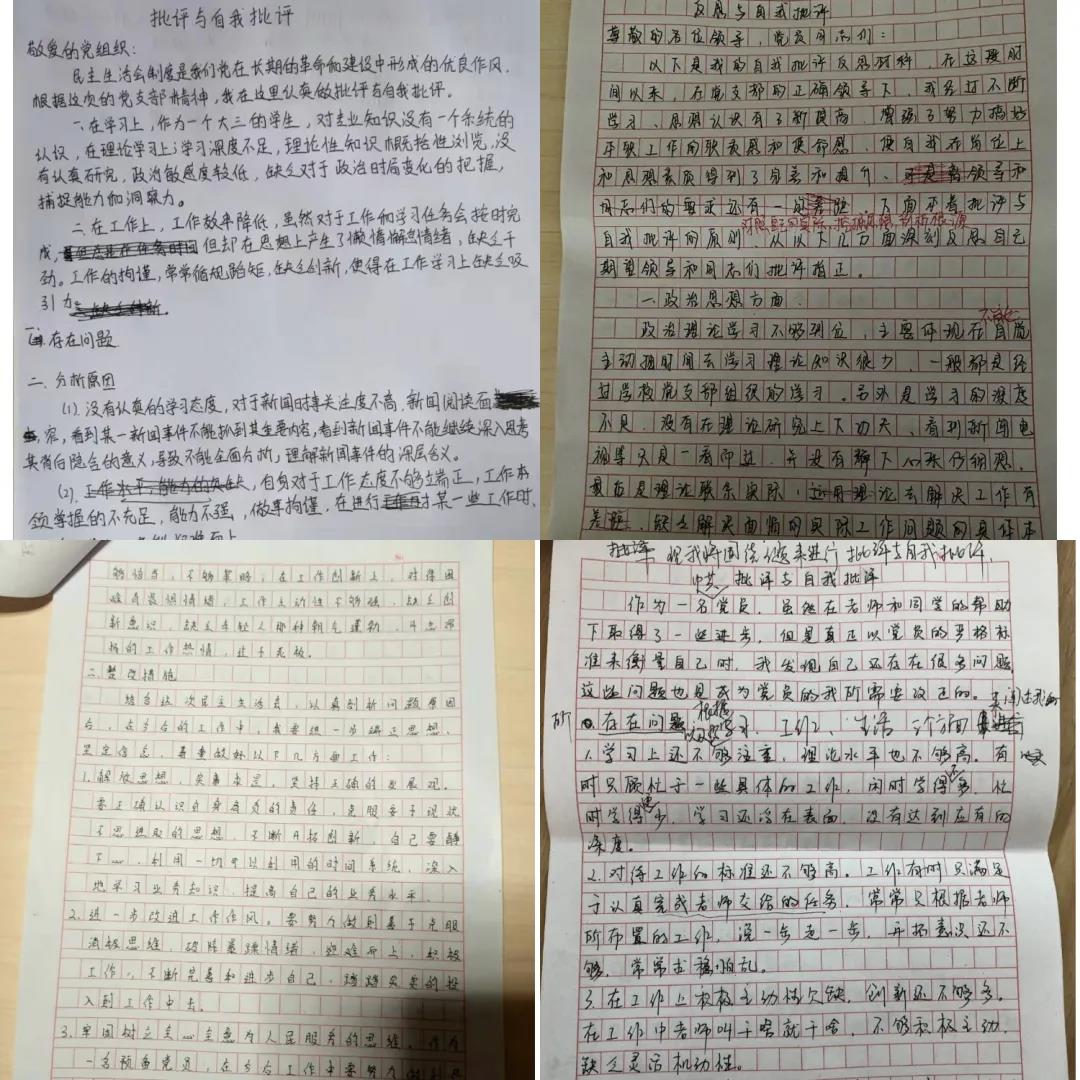 批评与自我批评
敬爱的党组织：
民主生活会制度是我们党在长期的革命和建设中形成的优良作风，
根据这次的党支部精神，我在这里认真做批评与自我批评。
一、在学习上，作为一个大三的学生，对专业知识没有一个系统的
认识，在理论学习上；学习深度不足，理论性知识概括性浏览，没
有认真研究，政治敏感度较低，缺乏对于政治时局变化的把握，
捕捉能力和洞察力。
二、在工作上，工作效率降低，虽然对于工作和学习任务会按时完
成，但却在思想上产生了懒惰懈怠情绪，缺乏干
劲。工作的拘谨，常常循规蹈矩，缺乏创新，使得在工作学习上缺乏吸
引力。
一、存在问题
二、分析原因
(1)．没有认真的学习态度，对于新闻时事关注度不高，新闻阅读面
窄，看到某一新闻事件不能抓到其主要内容，看到新闻事件不能继续深入思考
其背后隐含的意义，导致不能全面分析，理解新闻事件的深层含义。
(2)．自负对于工作态度不够端正，工作本
领掌握的不充足，能力不强，做事拘谨，在进行对某一些工作时，
反思与自我批评
尊敬的各位领导，党员同志们：
以下是我的自我批评反思材料，在这段时
间以来，在党支部的正确领导下，我经过不断
学习，思想认识有了新提高，增强了努力搞好
本职工作的职责感和使命感，使自我在岗位上
和思想素质得到了完善和提升。可是离领导和
同志们的要求还有一定差距，下面本着批评与
自我批评的原则，从以下几方面深刻反思自己
期望领导和同志们批评指正。
一、政治思想方面
不能
政治理论学习不够到位，主要体现在自觉
主动抽时间去学习理论知识很少，一般都是经
过学校党支部组织的学习。另外是学习的深度
不足，没有在理论研究上下功夫，看到新闻电
视等只是一看即过，并没有静下心来仔细想。
最后是理论联系实际，运用理论去解决工作有
差距，缺乏解决面临的实际工作问题的具体本
够恰当，不够策略，在工作创新上，对待困
难有畏惧情绪，工作主动性不够强，缺乏创
新意识，缺乏年轻人那种朝气蓬勃、斗志昂
扬的工作热情，过于死板。
二、整改措施
结合这次民主生活会，认真剖析问题原因
后，在今后的工作中，我要进一步端正思想，
坚定信念，着重做好以下几方面工作：
1.解放思想，实事求是，坚持正确的发展观。
要正确认识自身肩负的责任，克服安于现状
不思进取的思想，不断开拓创新，自己要静
下心，利用一切可以利用的时间系统、深入
地学习业务知识，提高自己的业务水平
2.进一步改进工作作风。要努力做到善于克服
消极思维，破除暴躁情绪，迎难而上，积极
工作，不断完善和进步自己，踏踏实实的投
入到工作中去。
3.牢固树立全心全意为人民服务的思维。作为
一名预备党员，在今后工作中要努力做到
批评 现我将围绕来进行批评与自我批评，
中共 批评与自我批评
作为一名党员，虽然在老师和同学的帮助
下取得了一些进步，但是真正以党员的严格标
准来衡量自己时，我发现自己还存在很多问题
这些问题也是成为党员的我所需要改正的。
存在问题 根据学习、工作、生活三个方面
1.学习上还不够注重，理论水平也不够高。有
时只顾忙于一些具体的工作，闲时学得多，忙
时学得少，学习还浮在表面，没有达到应有的
深度。
2.对待工作的标准还不够高。工作有时只满足
于认真完成老师交给的任务，常常只根据老师
所布置的工作，说一步走一步，开拓意识还不
够，常常求稳怕乱。
3.在工作上积极主动性欠缺，创新还不够多。
在工作中老师叫干啥就干啥，不够积极主动，
缺乏灵活机动性。